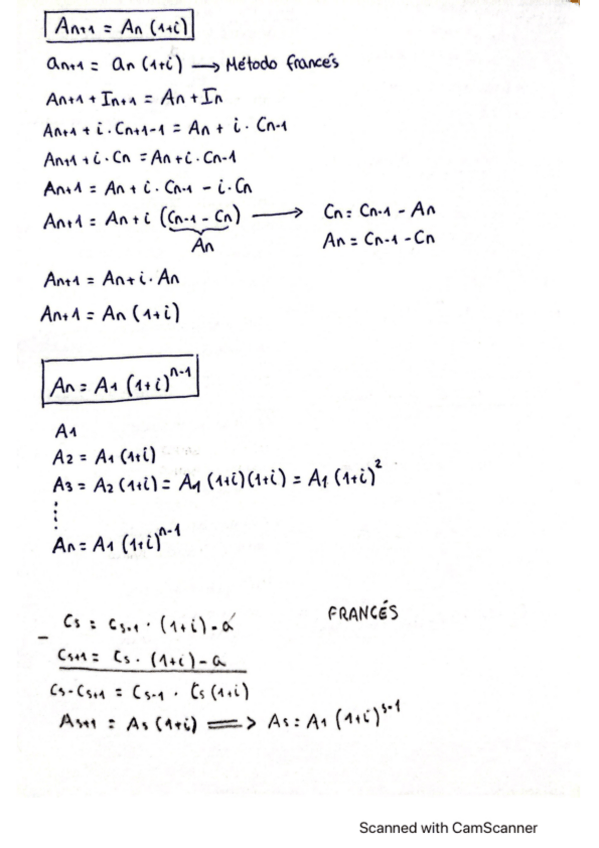 An+1 = An (1+i)
an+1 = an (1+i) → Método francés
An+1 + In+1 = An + In
An+1 + i · Cn+1-1 = An + i · Cn-1
An+1 + i · Cn = An + i · Cn-1
An+1 = An + i · Cn-1 - i · Cn
An+1 = An + i (Cn-1 - Cn) → Cn = Cn-1 - An
An An = Cn-1 - Cn
An+1 = An + i · An
An+1 = An (1+i)
An = A1 (1+i)^n-1
A1
A2 = A1 (1+i)
A3 = A2 (1+i) = A1 (1+i)(1+i) = A1 (1+i)^2
An = A1 (1+i)^n-1
FRANCÉS
Cs = Cs-1 · (1+i) - a
- Cs+1 = Cs · (1+i) - a
Cs - Cs+1 = Cs-1 · Cs (1+i)
As+1 = As (1+i) ⟹ As = A1 (1+i)^s-1
Scanned with CamScanner